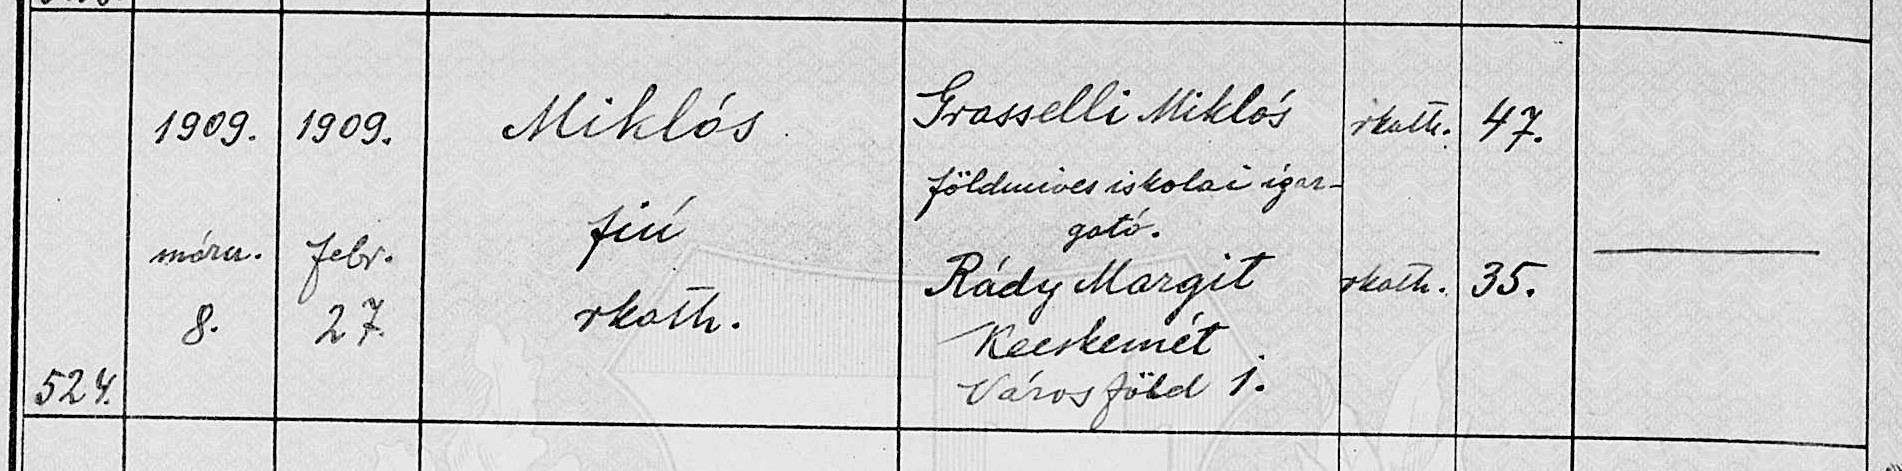 524.
1909.
márcz.
8.
1909.
febr.
27.
Miklós
fiú
rkath.
Grasselli Miklós
földmives iskolai igaz-
gató.
Rády Margit
Kecskemét
Városföld 1.
rkath.
rkath.
47.
35.